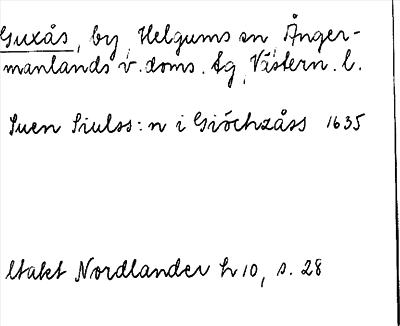 Guxås, by, Helgums sn, Ånger-
manlands v. doms. tg, Västern. l.
Suen Siulss:n i Giöchzåss 1635
Utakt Nordlander h 10, s. 28